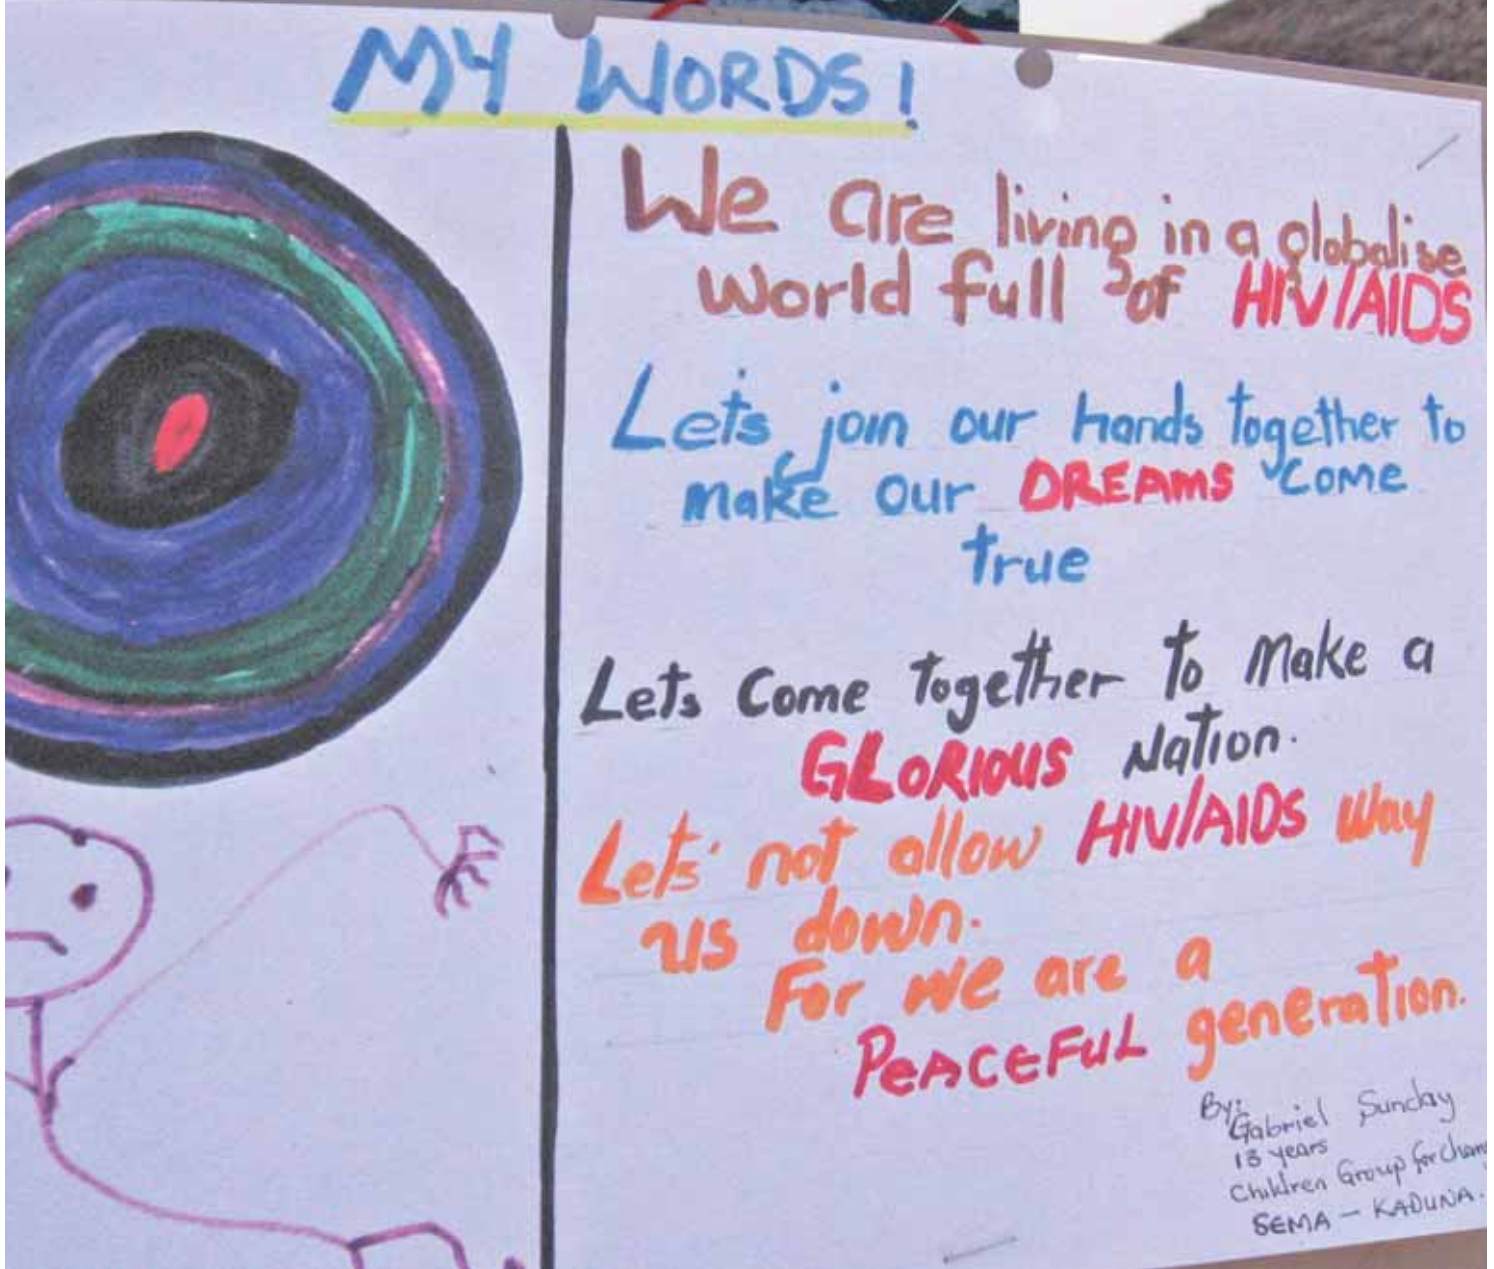 MY WORDS!
We are living in a globalise
World full of HIV/AIDS
Let's join our hands together to
make our DREAMS come
true
Lets Come together to Make a
GLORIOUS Nation.
Lets' not allow HIV/AIDS way
us down.
For we are a
PEACEFUL generation.
By:
Gabriel Sunday
13 years
Children Group for
SEMA - KADUNA.